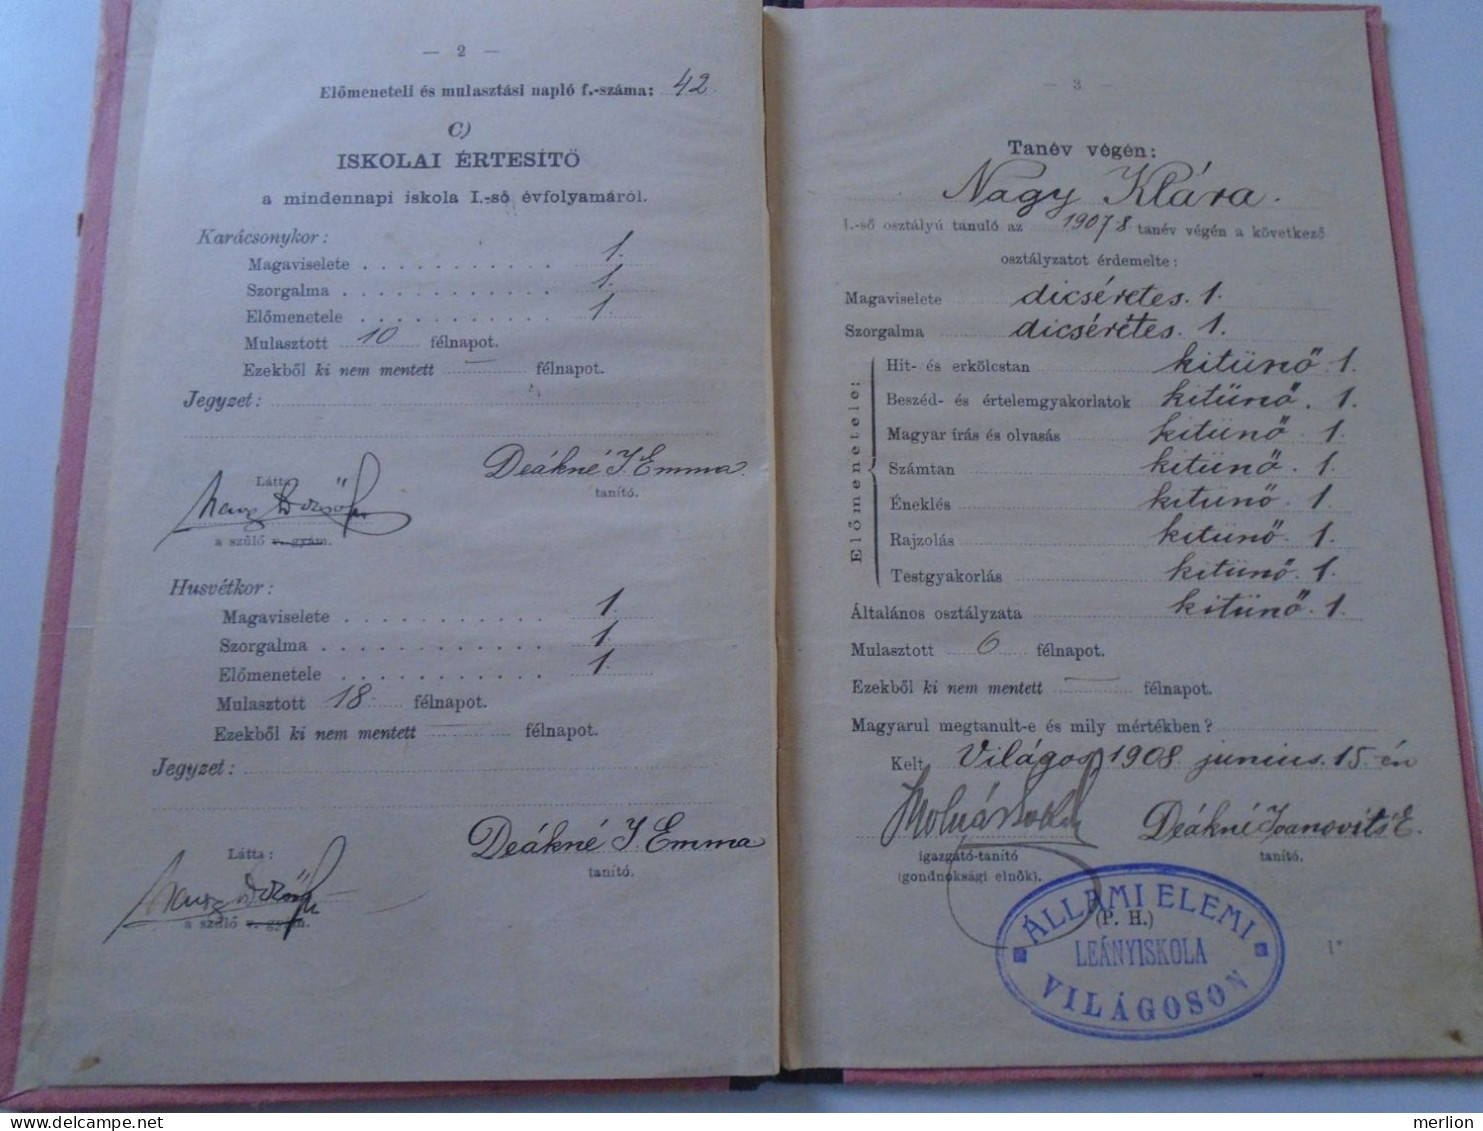 — 2 —
Előmeneteli és mulasztási napló f.-száma: 42.
C)
ISKOLAI ÉRTESÍTŐ
a mindennapi iskola I.-ső évfolyamáról.
Karácsonykor:
Magaviselete 1.
Szorgalma 1.
Előmenetele 1.
Mulasztott 10 félnapot.
Ezekből ki nem mentett — félnapot.
Jegyzet:
Deákné I. Emma
Látta:
tanító.
a szülő v. gyám.
Husvétkor:
Magaviselete 1.
Szorgalma 1.
Előmenetele 1.
Mulasztott 18 félnapot.
Ezekből ki nem mentett — félnapot.
Jegyzet:
Deákné I. Emma
Látta:
tanító.
a szülő v. gyám.
— 3 —
Tanév végén:
Nagy Klára.
I.-ső osztályú tanuló az 1907/8 tanév végén a következő
osztályzatot érdemelte:
Magaviselete dicséretes. 1.
Szorgalma dicséretes. 1.
Előmenetele:
Hit- és erkölcstan kitünő 1.
Beszéd- és értelemgyakorlatok kitünő. 1.
Magyar írás és olvasás kitünő 1.
Számtan kitünő. 1.
Éneklés kitünő 1.
Rajzolás kitünő. 1.
Testgyakorlás kitünő. 1.
Általános osztályzata kitünő. 1.
Mulasztott 6 félnapot.
Ezekből ki nem mentett — félnapot.
Magyarul megtanult-e és mily mértékben?
Kelt Világos 1908 junius 15-én
Deákné Ivanovits E.
igazgató-tanító
tanító.
(gondnoksági elnök).
(P. H.)
ÁLLAMI ELEMI
LEÁNYISKOLA
VILÁGOSON
1*
merlion